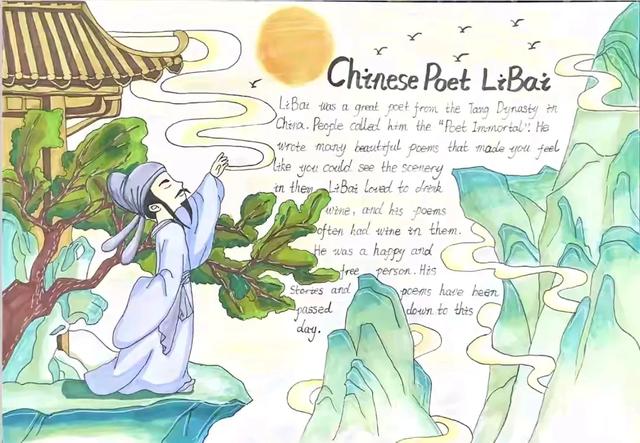 Chinese Poet LiBai
LiBai was a great poet from the Tang Dynasty in
China. People called him the "Poet Immortal". He
wrote many beautiful poems that made you feel
like you could see the scenery
in them. LiBai loved to drink
wine, and his poems
often had wine in them.
He was a happy and
free person. His
Stories and poems have been
passed down to this
day.